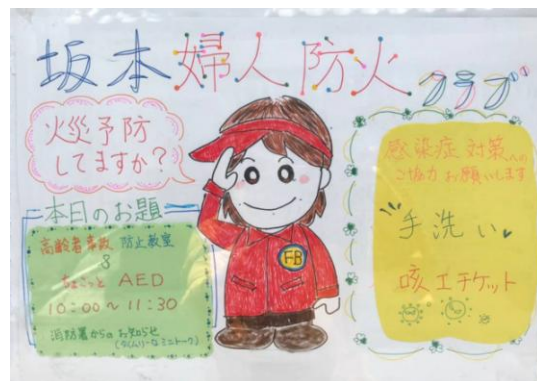 坂本婦人防火クラブ
火災予防
してますか?
本日のお題
高齢者事故 防止教室
&
ちょこっと AED
10:00〜11:30
消防署からのお知らせ
FB
感染症対策への
ご協力お願いします
手洗い
咳エチケット